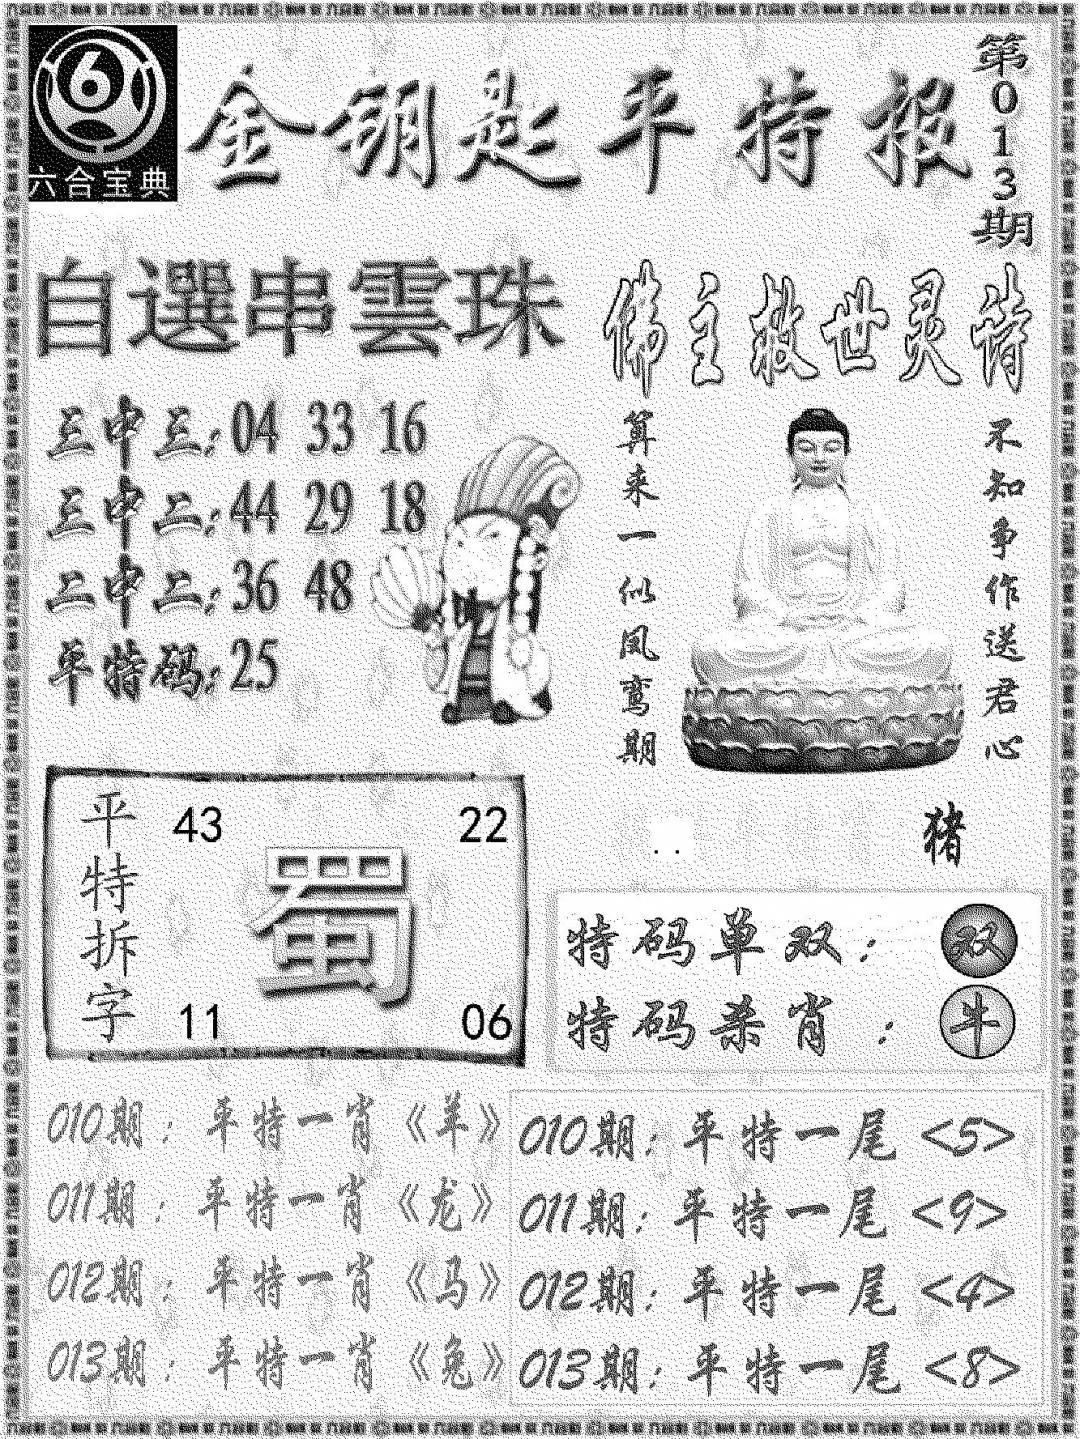 6
六合宝典
金钥匙平特报
第013期
自選串雲珠
三中三: 04 33 16
三中二: 44 29 18
二中二: 36 48
单特码: 25
佛主救世灵诗
算来一似凤鸾期
不知争作送君心
猪
平特拆字
43 22
蜀
11 06
特码单双: 双
特码杀肖: 牛
010期: 平特一肖《羊》
011期: 平特一肖《龙》
012期: 平特一肖《马》
013期: 平特一肖《兔》
010期: 平特一尾 <5>
011期: 平特一尾 <9>
012期: 平特一尾 <4>
013期: 平特一尾 <8>